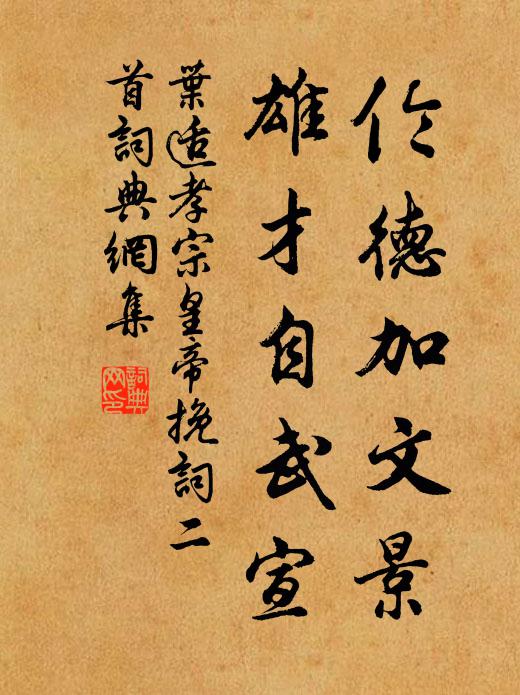 儉德加文景
雄才自武宣
葉适孝宗皇帝挽詞二
首詞典網集
詞典
网印